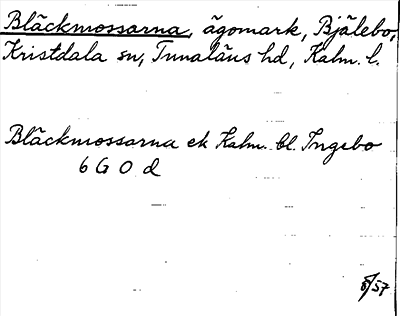 Bläckmossarna, ägomark, Bjälebo,
Kristdala sn, Tunaläns hd, Kalm. l.
Bläckmossarna ek Kalm. bl. Ingebo
6 G 0 d
8/57